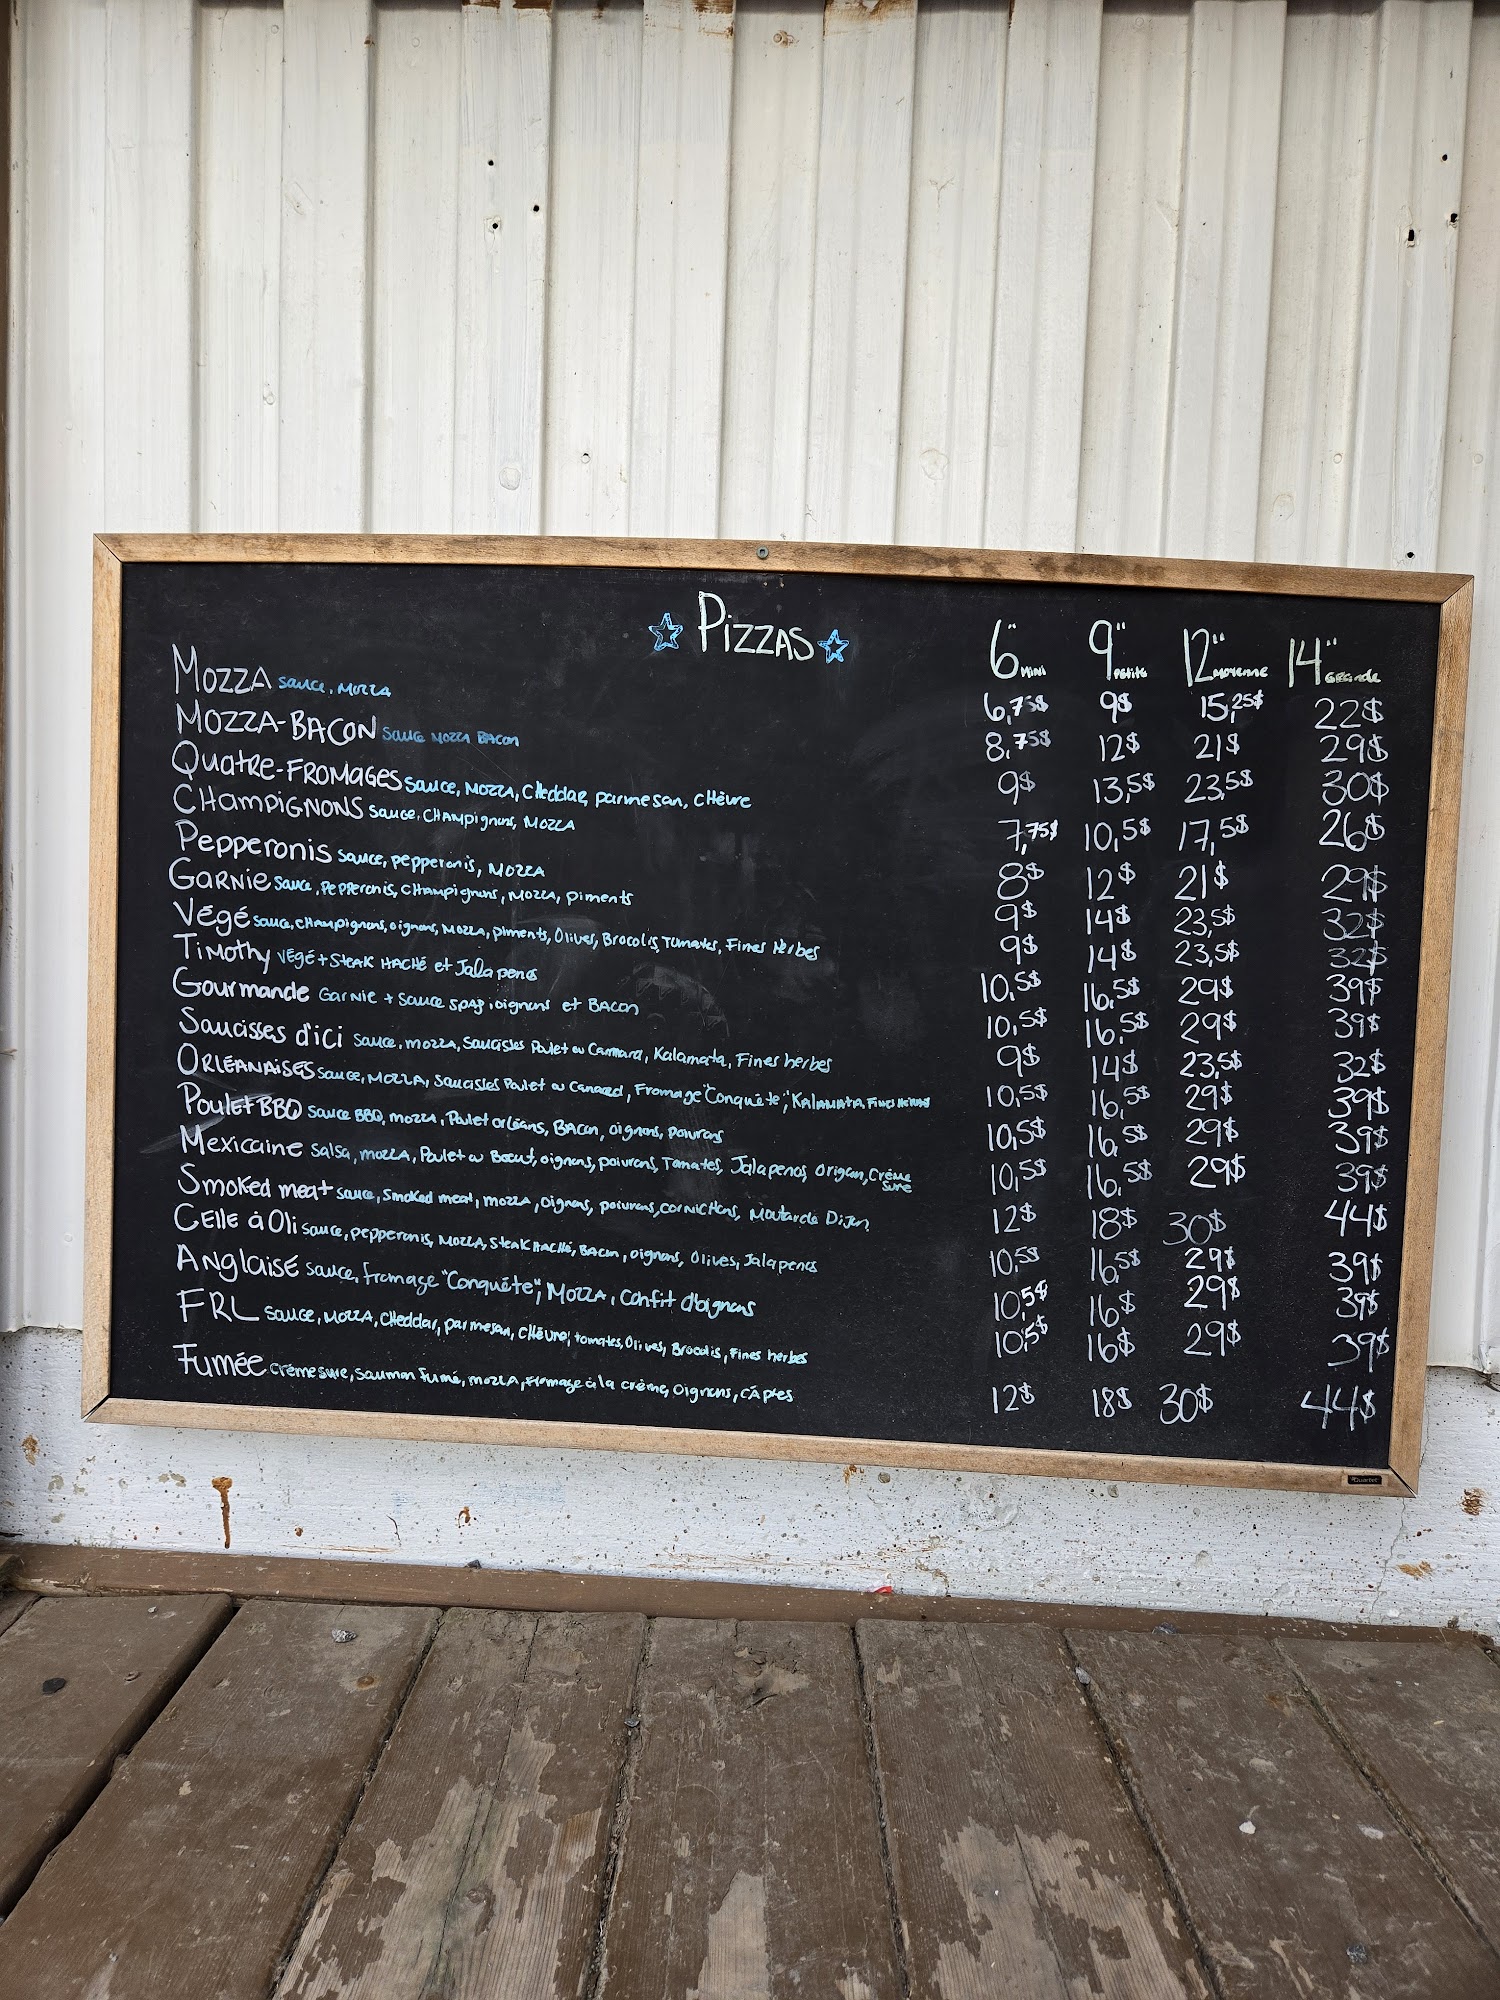 Pizzas 6" mini 9" petite 12" moyenne 14" Grande
Mozza sauce, mozza 6,75$ 9$ 15,25$ 22$
Mozza-Bacon sauce mozza Bacon 8,75$ 12$ 21$ 29$
Quatre-Fromages sauce, mozza, cheddar, parmesan, chèvre 9$ 13,5$ 23,5$ 30$
Champignons sauce, champignons, mozza 7,75$ 10,5$ 17,5$ 26$
Pepperonis sauce, pepperonis, mozza 8$ 12$ 21$ 29$
Garnie sauce, pepperonis, champignons, mozza, piments 9$ 14$ 23,5$ 32$
Végé sauce, champignons, oignons, mozza, piments, Olives, Brocolis, Tomates, Fines herbes 9$ 14$ 23,5$ 32$
Timothy végé + steak haché et Jalapenos 10,5$ 16,5$ 29$ 39$
Gourmande Garnie + sauce spag, oignons et Bacon 10,5$ 16,5$ 29$ 39$
Saucisses d'ici sauce, mozza, saucisses Poulet ou Cannard, Kalamata, Fines herbes 9$ 14$ 23,5$ 32$
Orléanaises sauce, mozza, saucisses Poulet ou Canard, Fromage "Conquête", Kalamata, Fines herbes 10,5$ 16,5$ 29$ 39$
Poulet BBQ sauce BBQ, mozza, Poulet orléans, Bacon, oignons, poivrons 10,5$ 16,5$ 29$ 39$
Mexicaine salsa, mozza, Poulet ou Boeuf, oignons, poivrons, Tomates, Jalapenos, origan, Crème sure 10,5$ 16,5$ 29$ 39$
Smoked meat sauce, smoked meat, mozza, oignons, poivrons, cornichons, Moutarde Dijon 12$ 18$ 30$ 44$
Celle à Oli sauce, pepperonis, mozza, steak haché, Bacon, oignons, Olives, Jalapenos 10,5$ 16,5$ 29$ 39$
Anglaise sauce, fromage "Conquête", Mozza, Confit d'oignons 10,5$ 16$ 29$ 39$
FRL sauce, mozza, cheddar, parmesan, chèvre, tomates, Olives, Brocolis, Fines herbes 10,5$ 16$ 29$ 39$
Fumée crème sure, saumon fumé, mozza, Fromage à la crème, oignons, câpres 12$ 18$ 30$ 44$
Quartet